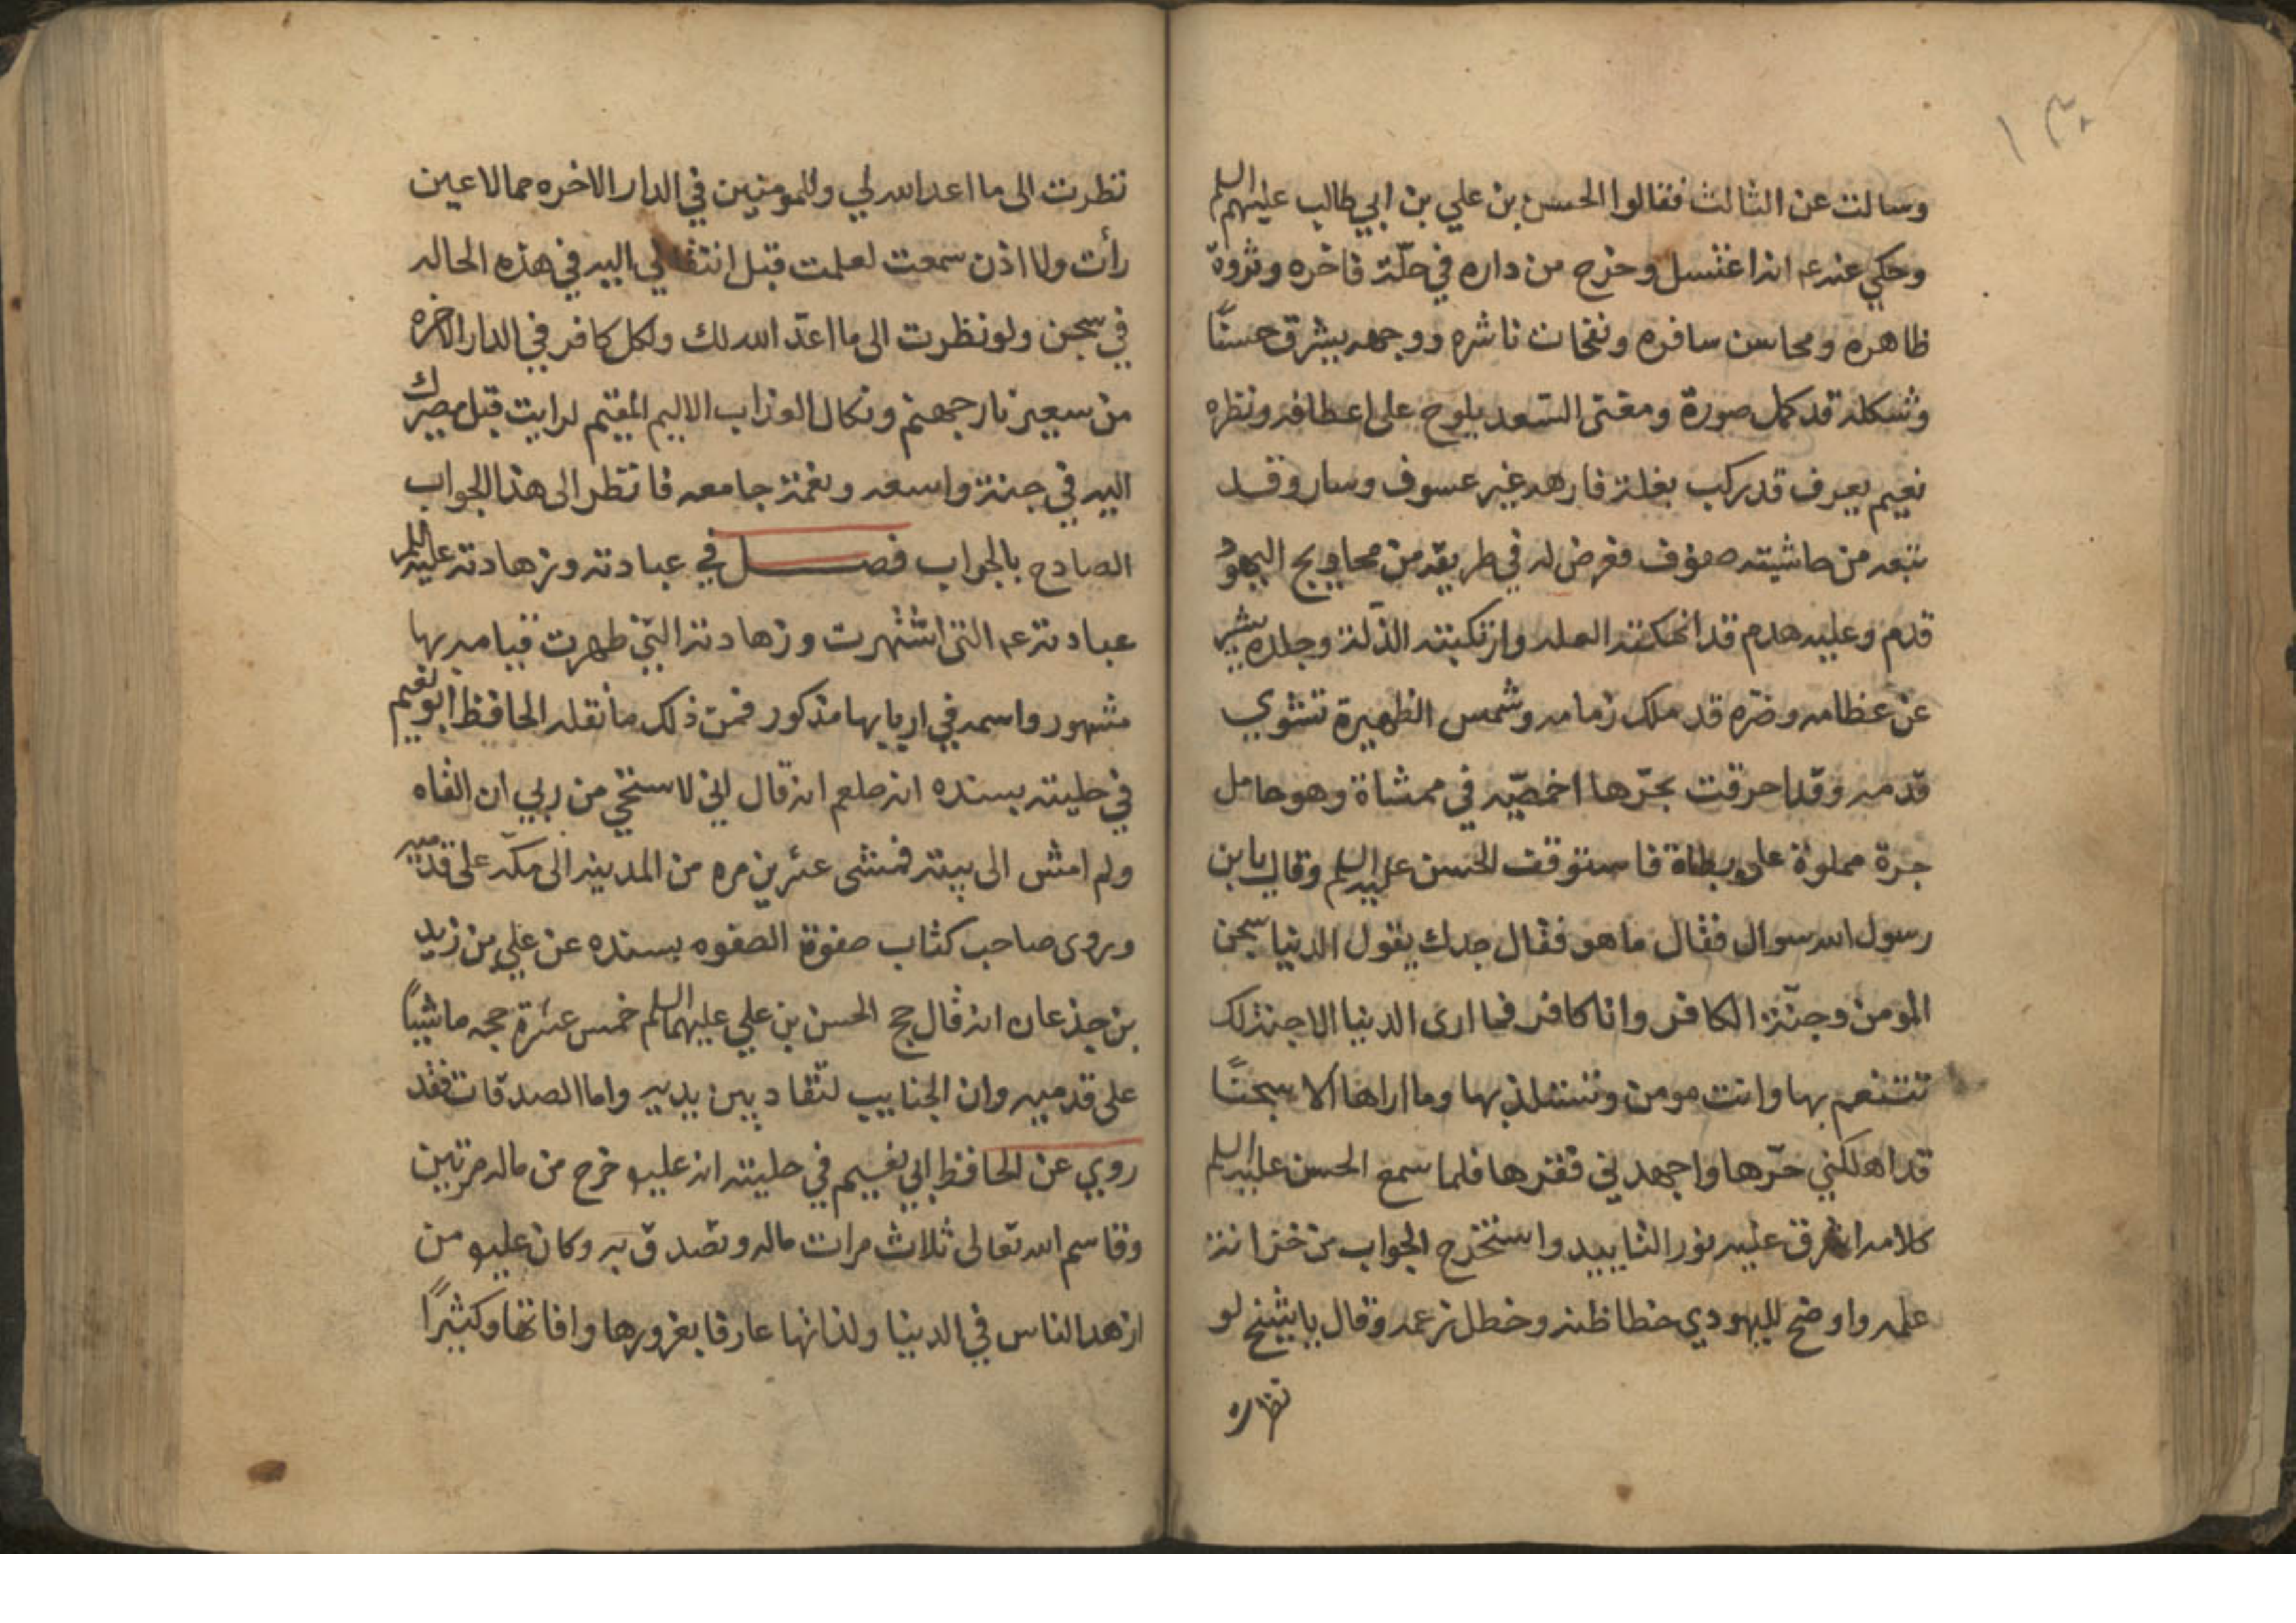 ١٣٠
وسالت عن الثالث فقالوا الحسن بن علي بن ابي طالب عليهم السلم
وحكي عنه ع انه اغتسل وخرج من داره في حلّة فاخره وبزوة
ظاهره ومحاسن سافره ونفحات ناشره ووجهه يشرق حسنًا
وشكله قد كمل صورة ومعنى السّعد يلوح على اعطافه ونظره
نعيم يعرف قد ركب بغلة فارهه غير عسوف وسار وقد
تبعه من حاشيته صفوف فعرض له في طريقه من محاويج اليهود
قدم وعليه هدم قد انحكته العله وارتكبته الذلّة وجلده يشير
عن عظامه وضره قد ملك زمامه وشمس الظهيرة تشوي
قدميه وقد احرقت بحرّها اخمصيّه في ممشاة وهو حامل
جرة مملوة على بطاة فاستوقف الحسن عليه السلم وقال يا بن
رسول الله سوال فقال ما هو فقال جدك يقول الدنيا سجن
المومن وجنّة الكافر وانا كافر فما ارى الدنيا الا جنة لك
تتنعم بها وانت مومن وتستلذ بها وما اراها الا سجنًا
قد اهلكني حرّها واجهدني فقرها فلما سمع الحسن عليه السلم
كلامه اشرق عليه نور التاييد واستخرج الجواب من خزانة
علمه واوضح لليهودي خطا ظنه وخطل زعمه وقال يا شيخ لو
نظرت
نظرت الى ما اعد الله لي وللمومنين في الدار الاخره مما لا عين
رأت ولا اذن سمعت لعلمت قبل انتقالي اليه في هذه الحاله
في سجن ولو نظرت الى ما اعدّ الله لك ولكل كافر في الدار الاخره
من سعير نار جهنم ونكال العذاب الاليم المقيم لرايت قبل مصيرك
اليه في جنة واسعه ونعمة جامعه فانظر الى هذا الجواب
الصادح بالجواب فصل في عبادته وزهادته عليه السلم
عبادته ع التى اشتهرت وزهادته التي ظهرت قيامه بها
مشهور واسمه في اربابها مذكور فمن ذلك ما نقله الحافظ ابو نعيم
في حليته بسنده انه صلعم انه قال اني لاستحي من ربي ان القاه
ولم امش الى بيته فمشى عشرين مره من المدينه الى مكّه على قدميه
وروى صاحب كتاب صفوة الصفوه بسنده عن علي بن زيد
بن جذعان انه قال حج الحسن بن علي عليهما السلم خمس عشرة حجه ماشيًا
على قدميه وان الجنايب لتقاد بين يديه واما الصدقات فقد
روي عن الحافظ ابي نعيم في حليته انه عليه خرج من ماله مرتين
وقاسم الله تعالى ثلاث مرات ماله وتصدق به وكان عليه من
ازهد الناس في الدنيا ولذاتها عارفا بغرورها وافاتها وكثيرًا